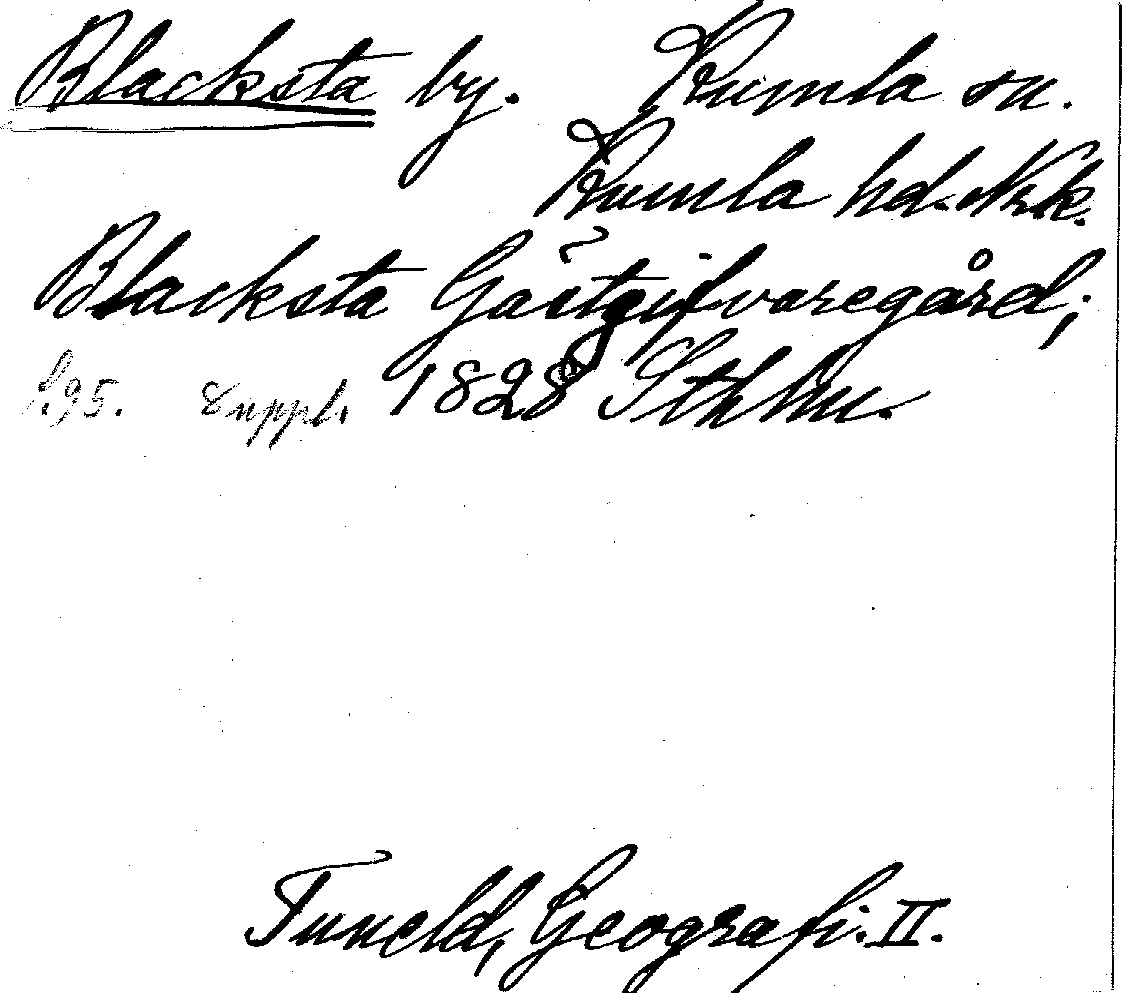 Blacksta by. Kumla sn.
Kumla hd. Nrk.
Blacksta Gästgifvaregård;
s. 95. Suppl. 1828 Sthlm.
Tuneld, Geografi. II.